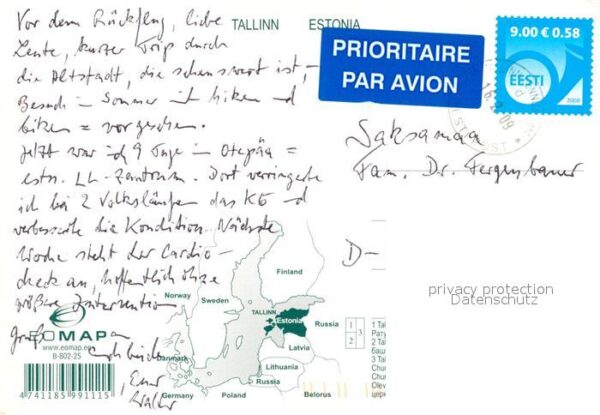 TALLINN ESTONIA
Vor dem Rückflug, liebe
Leute, kurzer Trip durch
die Altstadt, die sehenswert ist, –
Besuch im Sommer mit hiken und
biken = vorgesehen.
Jetzt war ich 9 Tage in Otepää =
estn. LL-Zentrum. Dort verringerte
ich bei 2 Volksläufen das KG und
verbesserte die Kondition. Nächste
Woche steht der Cardio-
check an, hoffentlich ohne
größere Intervention
PRIORITAIRE
PAR AVION
9.00 € 0.58
EESTI
2008
16.2.09
Saksamaa
Fam. Dr. Fergenbauer
D-
privacy protection
Datenschutz
Norway
Sweden
Finland
TALLINN
Estonia
Russia
Latvia
Lithuania
Denmark
Russia
Germany
Poland
Belorus
EOMAP
www.eomap.ee
B-802-25
4 741185 991115
Euer
Walter
1
2
3